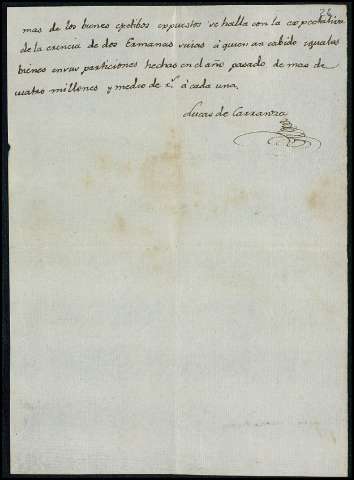 mas de los bienes efetibos expuestos se halla con la expectatiba
de la erencia de dos Ermanas suias á quien an cabido iguales
bienes en sus particiones hechas en el año pasado de mas de
cuatro millones y medio de r.s á cada una.
Lucas de Carranza